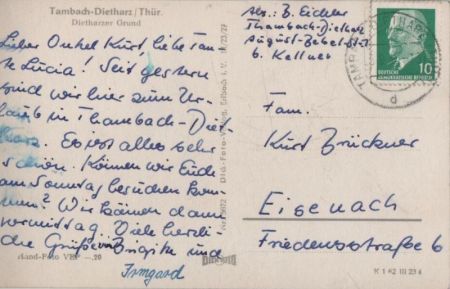 Tambach-Dietharz/Thür.
Dietharzer Grund
Lieber Onkel Kurt, liebe Tan-
te Lucia! Seit gestern
sind wir hier zum Ur-
laub in Thambach-Diet-
harz. Es ist alles sehr
schön. Können wir Euch
am Sonntag besuchen kom-
men? Wir kämen dann
vormittag. Viele herzli-
che Grüße von Brigitte und
Irmgard
Bild-Foto VEB -,20
Abs.: B. Eichler
Thambach-Dietharz
August-Bebel-Str.
b. Kellner
DEUTSCHE
DEMOKRATISCHE REPUBLIK
10
d
Fam.
Kurt Brückner
Eisenach
Friedensstraße 6